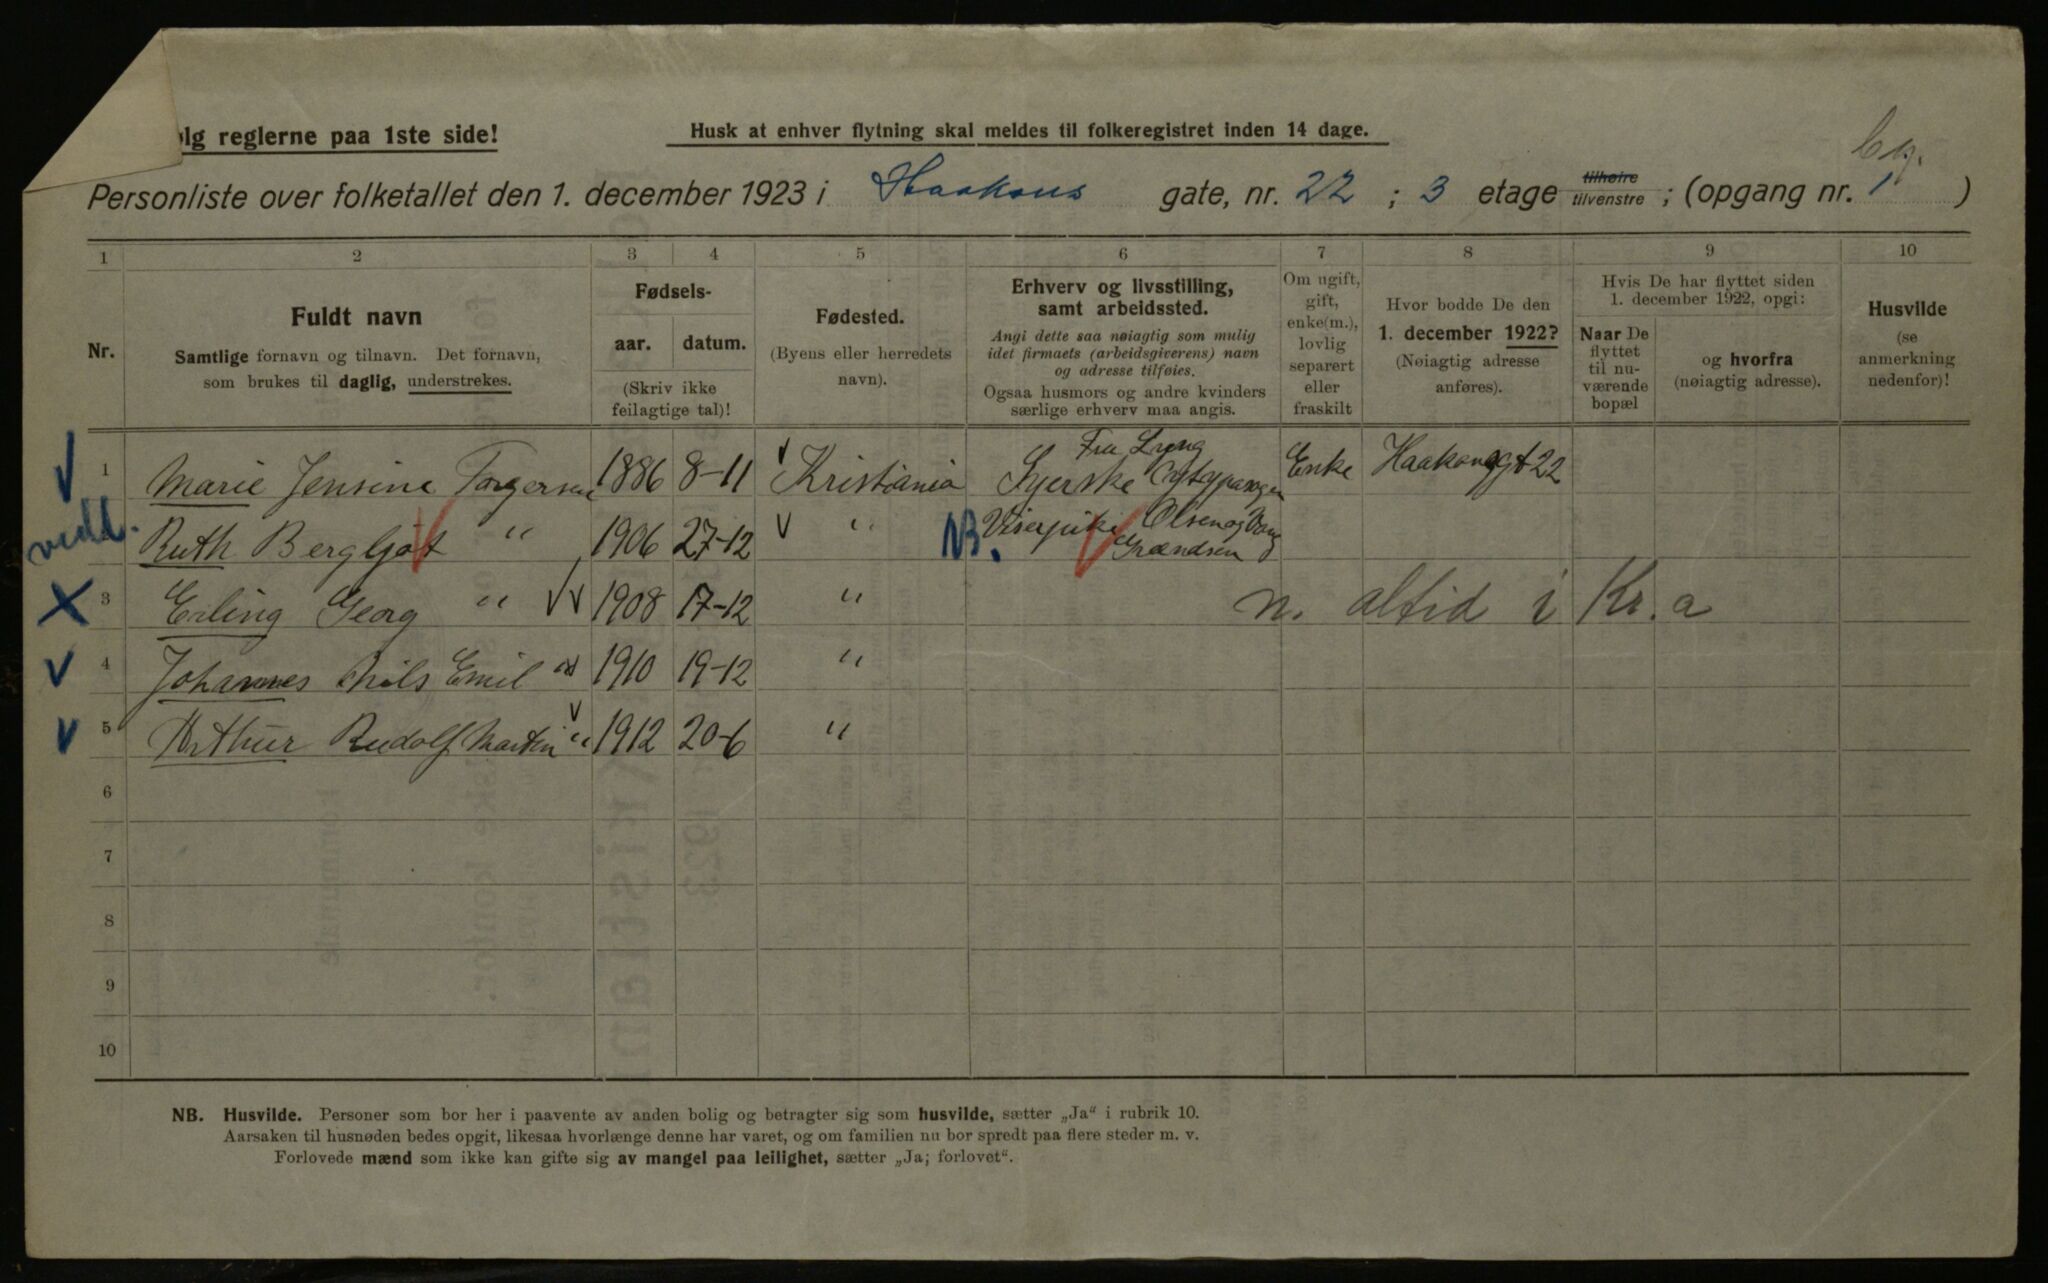 olg reglerne paa 1ste side!
Husk at enhver flytning skal meldes til folkeregistret inden 14 dage.
Personliste over folketallet den 1. december 1923 i Haakons gate, nr. 22 ; 3 etage tilhøire tilvenstre ; (opgang nr. 1 )
1 2 3 4 5 6 7 8 9 10
Nr.
Fuldt navn
Samtlige fornavn og tilnavn. Det fornavn,
som brukes til daglig, understrekes.
Fødsels-
aar. datum.
(Skriv ikke
feilagtige tal)!
Fødested.
(Byens eller herredets
navn).
Erhverv og livsstilling,
samt arbeidssted.
Angi dette saa nøiagtig som mulig
idet firmaets (arbeidsgiverens) navn
og adresse tilføies.
Ogsaa husmors og andre kvinders
særlige erhverv maa angis.
Om ugift,
gift,
enke(m.),
lovlig
separert
eller
fraskilt
Hvor bodde De den
1. december 1922?
(Nøiagtig adresse
anføres).
Hvis De har flyttet siden
1. december 1922, opgi:
Naar De
flyttet
til nu-
værende
bopæl
og hvorfra
(nøiagtig adresse).
Husvilde
(se
anmerkning
nedenfor)!
Fru Lyng
1 Marie Jensine Torgersen 1886 8-11 Kristiania Syerske Enke Haakonsgt 22
vedl. Ruth Bergljot " 1906 27-12 " NB. Viserpike Olsen og Vang
Grændsen
3 Erling Georg " 1908 17-12 " n. altid i Kr.a
4 Johannes Nils Emil " 1910 19-12 "
5 Arthur Rudolf Martin " 1912 20-6 "
6
7
8
9
10
NB. Husvilde. Personer som bor her i paavente av anden bolig og betragter sig som husvilde, sætter „Ja“ i rubrik 10.
Aarsaken til husnøden bedes opgit, likesaa hvorlænge denne har varet, og om familien nu bor spredt paa flere steder m. v.
Forlovede mænd som ikke kan gifte sig av mangel paa leilighet, sætter „Ja; forlovet“.